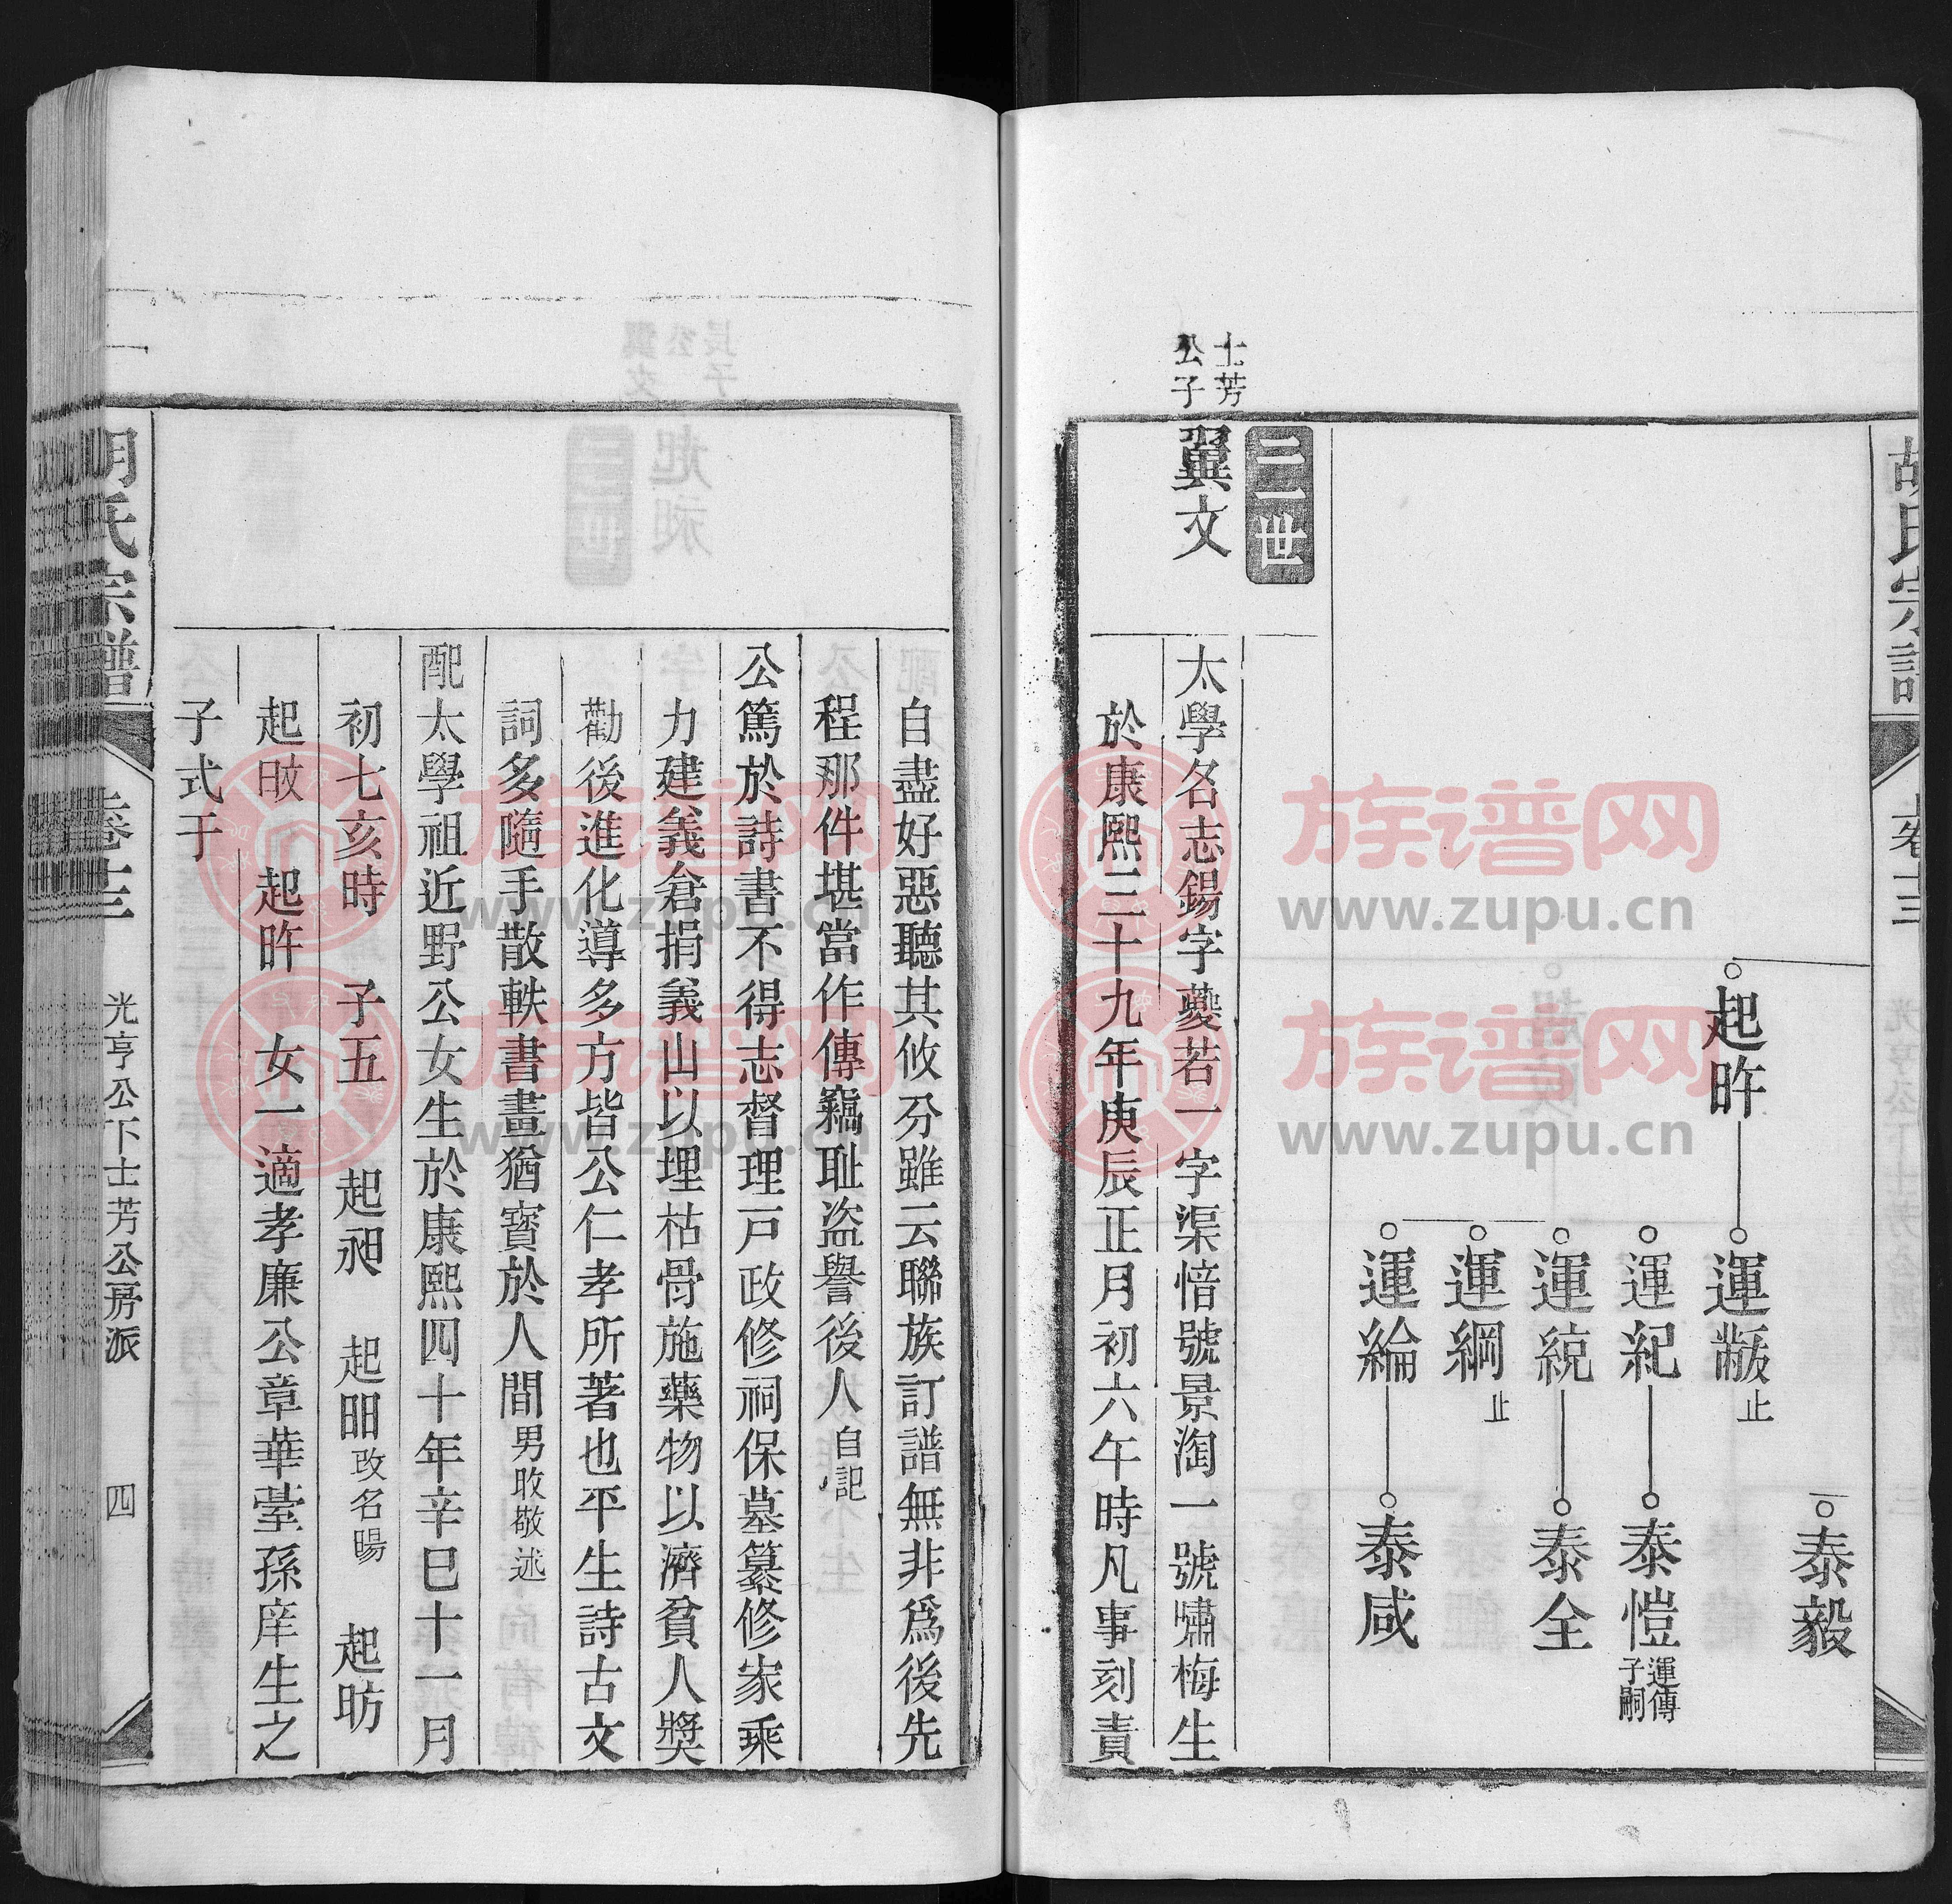 胡氏宗譜
卷十三
起昨
運黻止
運紀
運統
運綱止
運綸
泰毅
泰愷運傳子嗣
泰全
泰咸
三世
士芳公子
翼文
太學名志錫字夔若一字渠愔號景淘一號嘯梅生
於康熙三十九年庚辰正月初六午時凡事刻責
自盡好惡聽其攸分雖云聯族訂譜無非爲後先
程那件堪當作傳竊耻盜譽後人自記
公篤於詩書不得志督理戸政修祠保墓纂修家乘
力建義倉捐義山以埋枯骨施藥物以濟貧人獎
勸後進化導多方皆公仁孝所著也平生詩古文
詞多隨手散軼書畫猶寳於人間男敃敬述
配太學祖近野公女生於康熙四十年辛巳十一月
初七亥時 子五 起昶 起明改名暘 起昉
起敃 起昨 女一適孝廉公章華臺孫庠生之
子式于
胡氏宗譜
卷十三
光亨公下士芳公房派
四
族谱网
www.zupu.cn
族谱网
www.zupu.cn
族谱网
www.zupu.cn
族谱网
www.zupu.cn